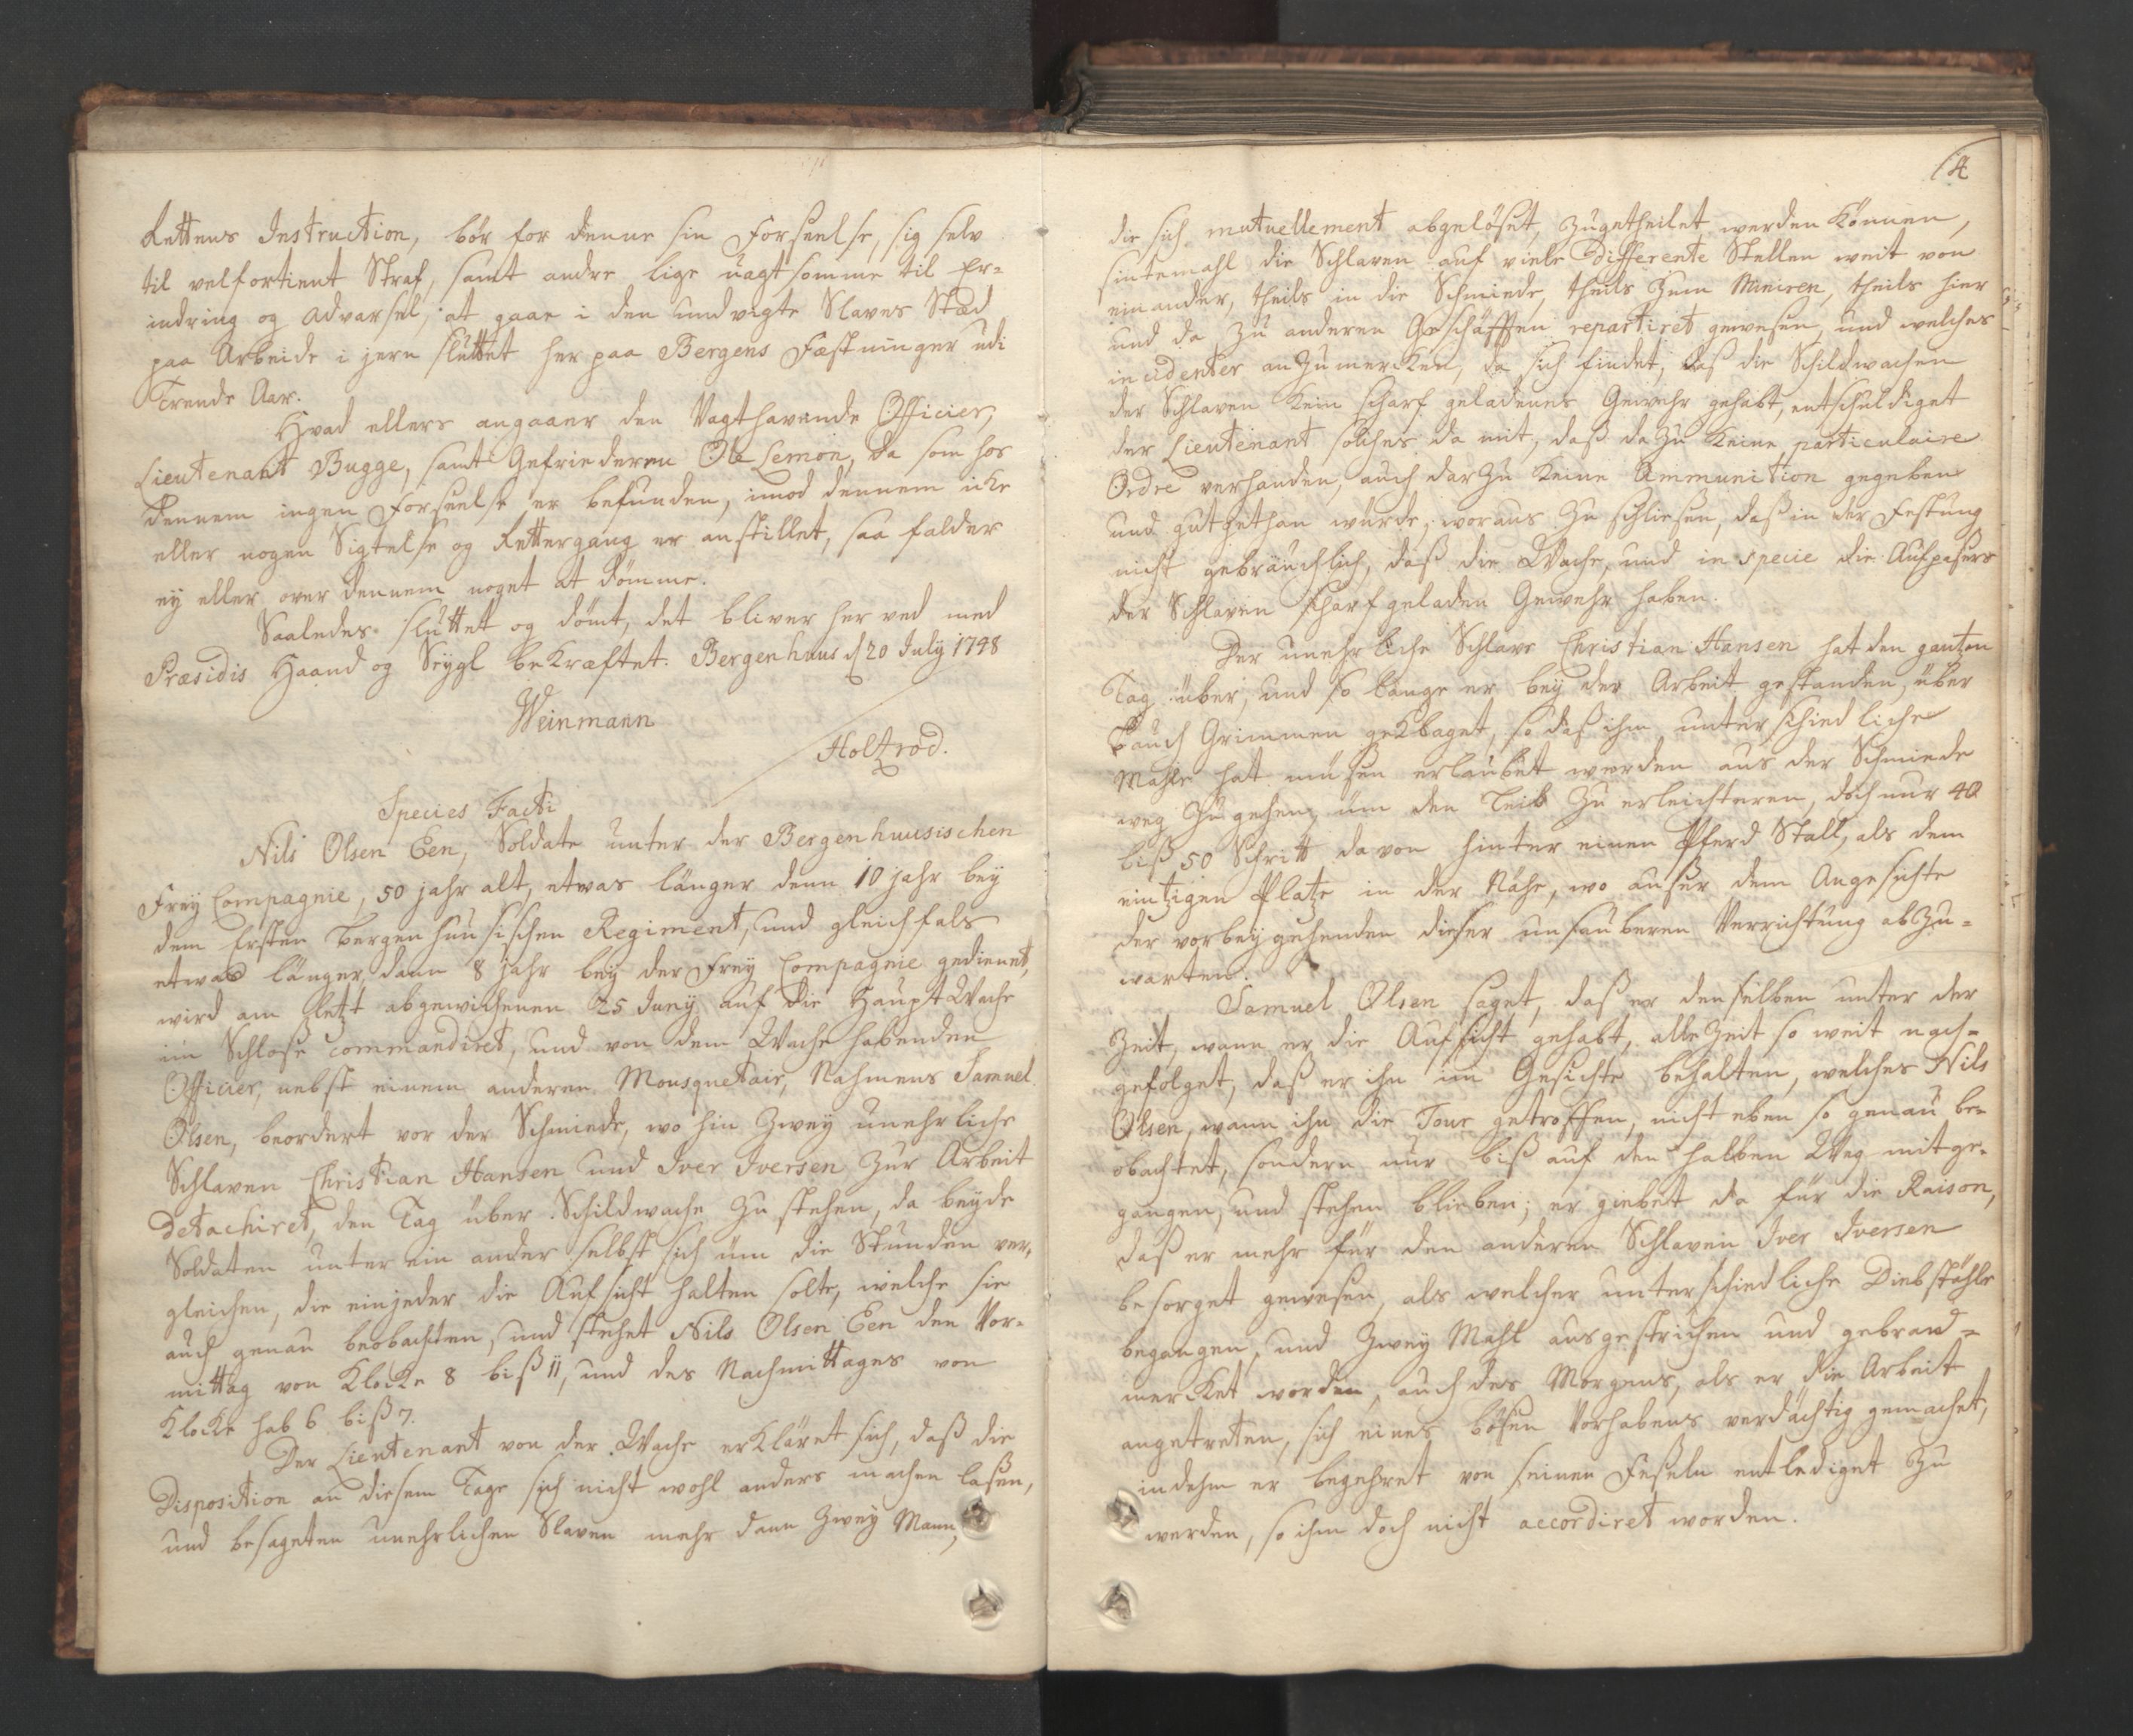 Rettens Instruction, bör for denne sin Forseelse, sig selv
til velfortient Straf, samt andre lige uagtsomme til Er=
indring og Advarsel, at gaae i den undvigte Slaves Stæd
paa Arbeide i jern sluttet her paa Bergens Fæstninger udi
Trende Aar.
Hvad ellers angaaer den Vagthavende Officier,
Lieutenant Bugge, samt Gefriederen Ole Lemon, da som hos
dennem ingen Forseelse er befunden, imod dennem icke
eller nogen Sigtelse og Rettergang er anstillet, saa falder
ey eller over dennem noget at dömme.
Saaledes sluttet og dömt, det bliver her ved med
Præsidis Haand og Seygl bekræftet. Bergenhuus d 20 July 1748
Weinmann
Holtzrod.
Species Facti
Nils Olsen Een, Soldate unter der Bergenhuusischen
Frey Compagnie, 50 jahr alt, etwas länger denn 10 jahr bey
dem Ersten Bergenhuusischen Regiment, und gleichfals
etwas länger dann 8 jahr bey der Frey Compagnie gedienet,
wird am letzt abgewichenen 25 Juny auf die Haupt Wache
im Schlosse commandiret, und von dem Wache habenden
Officier, nebst einem anderen Mousquetair, Nahmens Samuel
Olsen, beordert vor der Schmiede, wo hin zwey unehrliche
Schlaven Christian Hansen und Iver Iversen zur Arbeit
detachiret, den Tag über Schildwache zu stehen, da beyde
Soldaten unter ein ander selbst sich um die Stunden ver=
gleichen, die einjeder die Aufsicht halten solte, welche sie
auch genau beobachten, und stehet Nils Olsen Een den Vor=
mittag von Klocke 8 biß 11, und des Nachmittages von
Klocke halb 6 biß 7.
Der Lieutenant von der Wache erkläret sich, daß die
Disposition an diesem Tage sich nicht wohl anders machen laßen,
und besageten unehrlichen Slaven mehr dann zwey Mann,
4
die sich mutuellement abgelöset, zugetheilet werden können,
sintemahl die Schlaven auf viele differente Stellen weit von
einander, theils in die Schmiede, theils zum Miniren, theils hier
und da zu anderen Geschäfften repartiret gewesen, und welches
incidenter anzumercken, da sich findet, daß die Schildwachen
der Schlaven kein scharf geladenes Gewehr gehabt, entschuldiget
der Lieutenant solches da mit, daß da zu keine particulaire
Ordre verhanden, auch darzu keine Ammunition gegeben
und gutgethan wurde, woraus zu schliesen, daß in der Festung
nicht gebräuchlich, daß die Wache, und in specie die Aufpaßers
der Schlaven scharf geladen Gewehr haben.
Der unehrliche Schlave Christian Hansen hat den gantzen
Tag über, und so lange er bey der Arbeit gestanden, über
Bauch Grimmen geklaget, so daß ihm unterschiedliche
Mahle hat müßen erlaubet werden aus der Schmiede
weg zu gehen, um den Leib zu erleichteren, doch nur 40
biß 50 Schritt davon hinter einen Pferd Stall, als dem
eintzigen Platze in der Nähe, wo außer dem Angesichte
der vorbeygehenden dieser unsauberen Verrichtung abzu=
warten.
Samuel Olsen saget, daß er denselben unter der
Zeit, wann er die Aufsicht gehabt, alle Zeit so weit nach=
gefolget, daß er ihn im Gesichte behalten, welches Nils
Olsen, wann ihn die Tour getroffen, nicht eben so genau be=
obachtet, sondern nur biß auf den halben Weg mitge=
gangen, und stehen blieben; er giebet da für die Raison,
daß er mehr für den anderen Schlaven Iver Iversen
besorget gewesen, als welcher unterschiedliche Diebstähle
begangen, und zwey Mahl ausgestrichen und gebrand=
mercket worden, auch des Morgens, als er die Arbeit
angetreten, sich eines bösen Vorhabens verdächtig gemachet,
indehm er begehret von seinen Feßeln entlediget zu
werden, so ihm doch nicht accordiret worden.